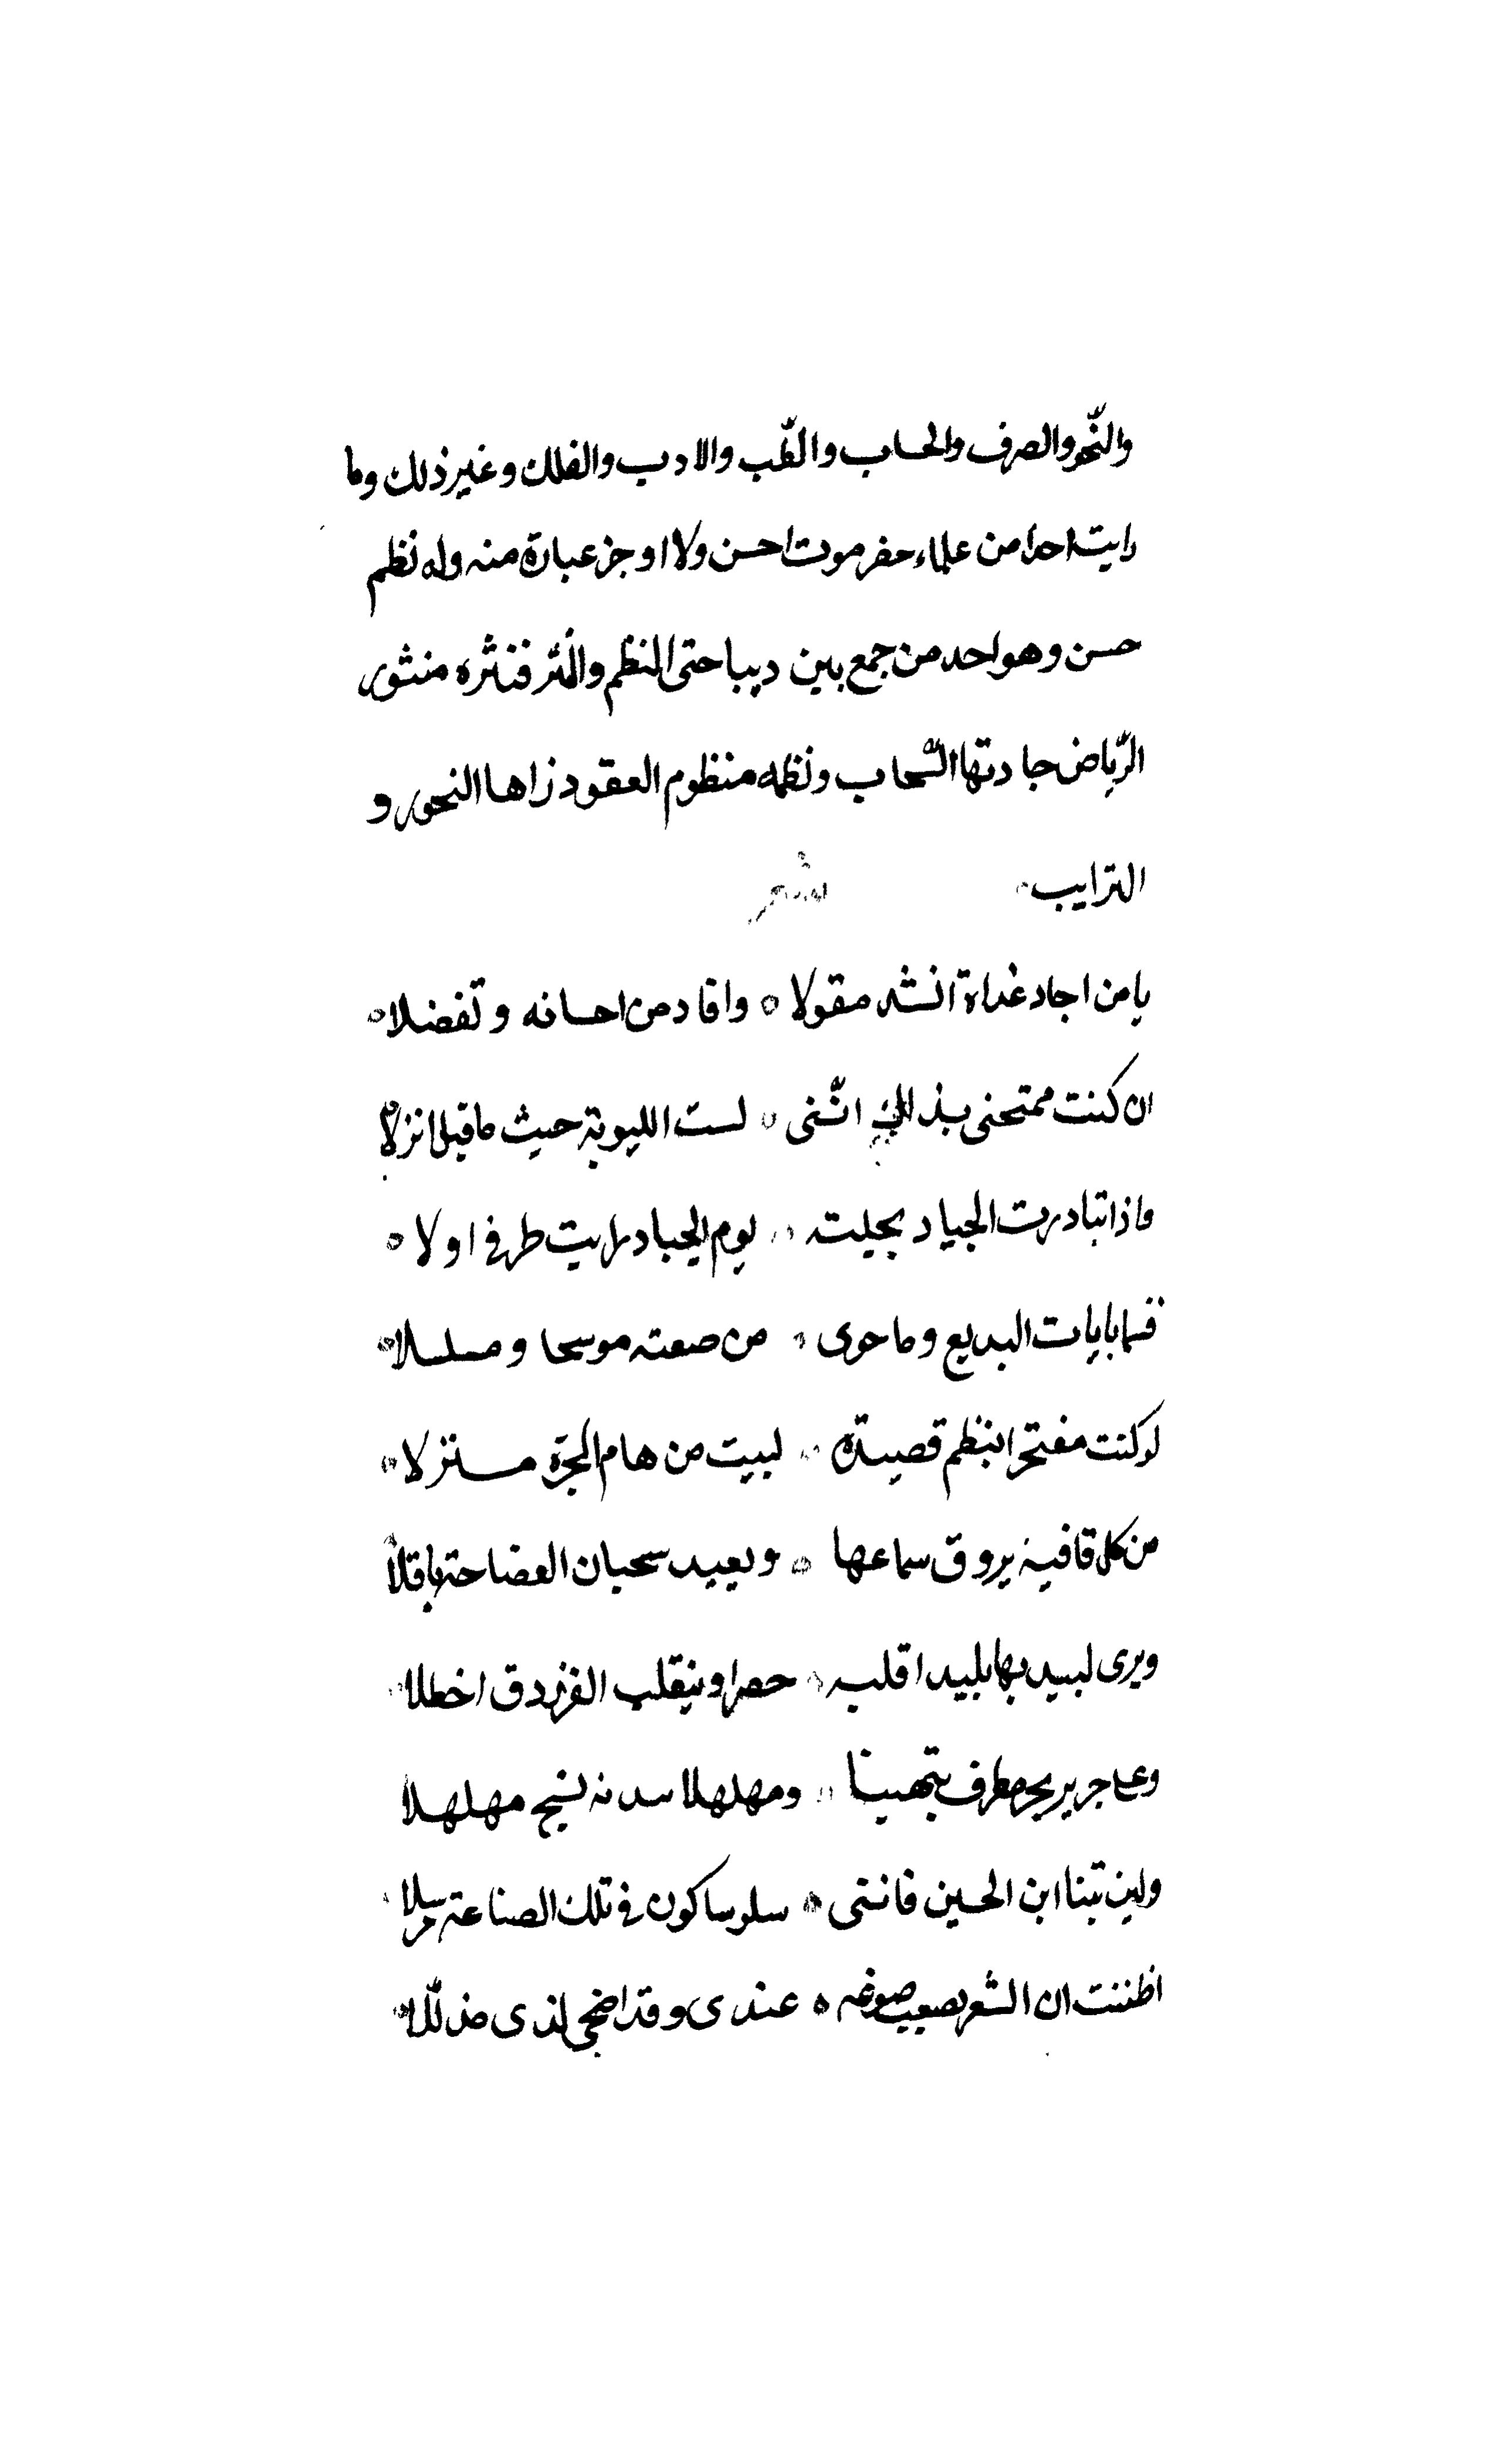 والنّحو والصرف والحساب والطّب والادب والفلك وغير ذلك وما
رايت احدا من علماء حضرموت احسن ولا اوجز عبارة منه وله نظم
حسن وهو احد من جمع بين ديباحتى النظم والنثر فنثره منثور
الرّياض جادتها السّحاب ونظمه منظوم العقود زاها النحور و
الترايب شعر
يا من اجاد غداة انشد مقولا ه وافاد من احسانه وتفضلا
ان كنت ممتحنى بذلك انّنى ه لست الليوية حيث ما قيل انزلا
واذا تبادرت الجياد بحلبته يوم الجياد رايت طرفى اولا ه
قسما بايات البديع وما حوى من صعته موسحا ومسلسلا
لو كنت مفتخرا بنظم قصيدة لبيت من هام المجرّة منزلا
من كل قافية يروق سماعها ه ويعيد سحبان الفصاحة باقلا
ويرى لبيد بها بليدا قلبه حصرا وينقلب الفرزدق اخطلا
وعلى جرير يجر مطرف تيهنا ومهلهلا سدنه نسج مهلهلا
ولين تبنا ابن الحسين فاننى ه ساكون فى تلك الصناعة مرسلا
اظننت ان الشعر يصعب صوغه ه عندى وقد اضحى لذى مذلّلا